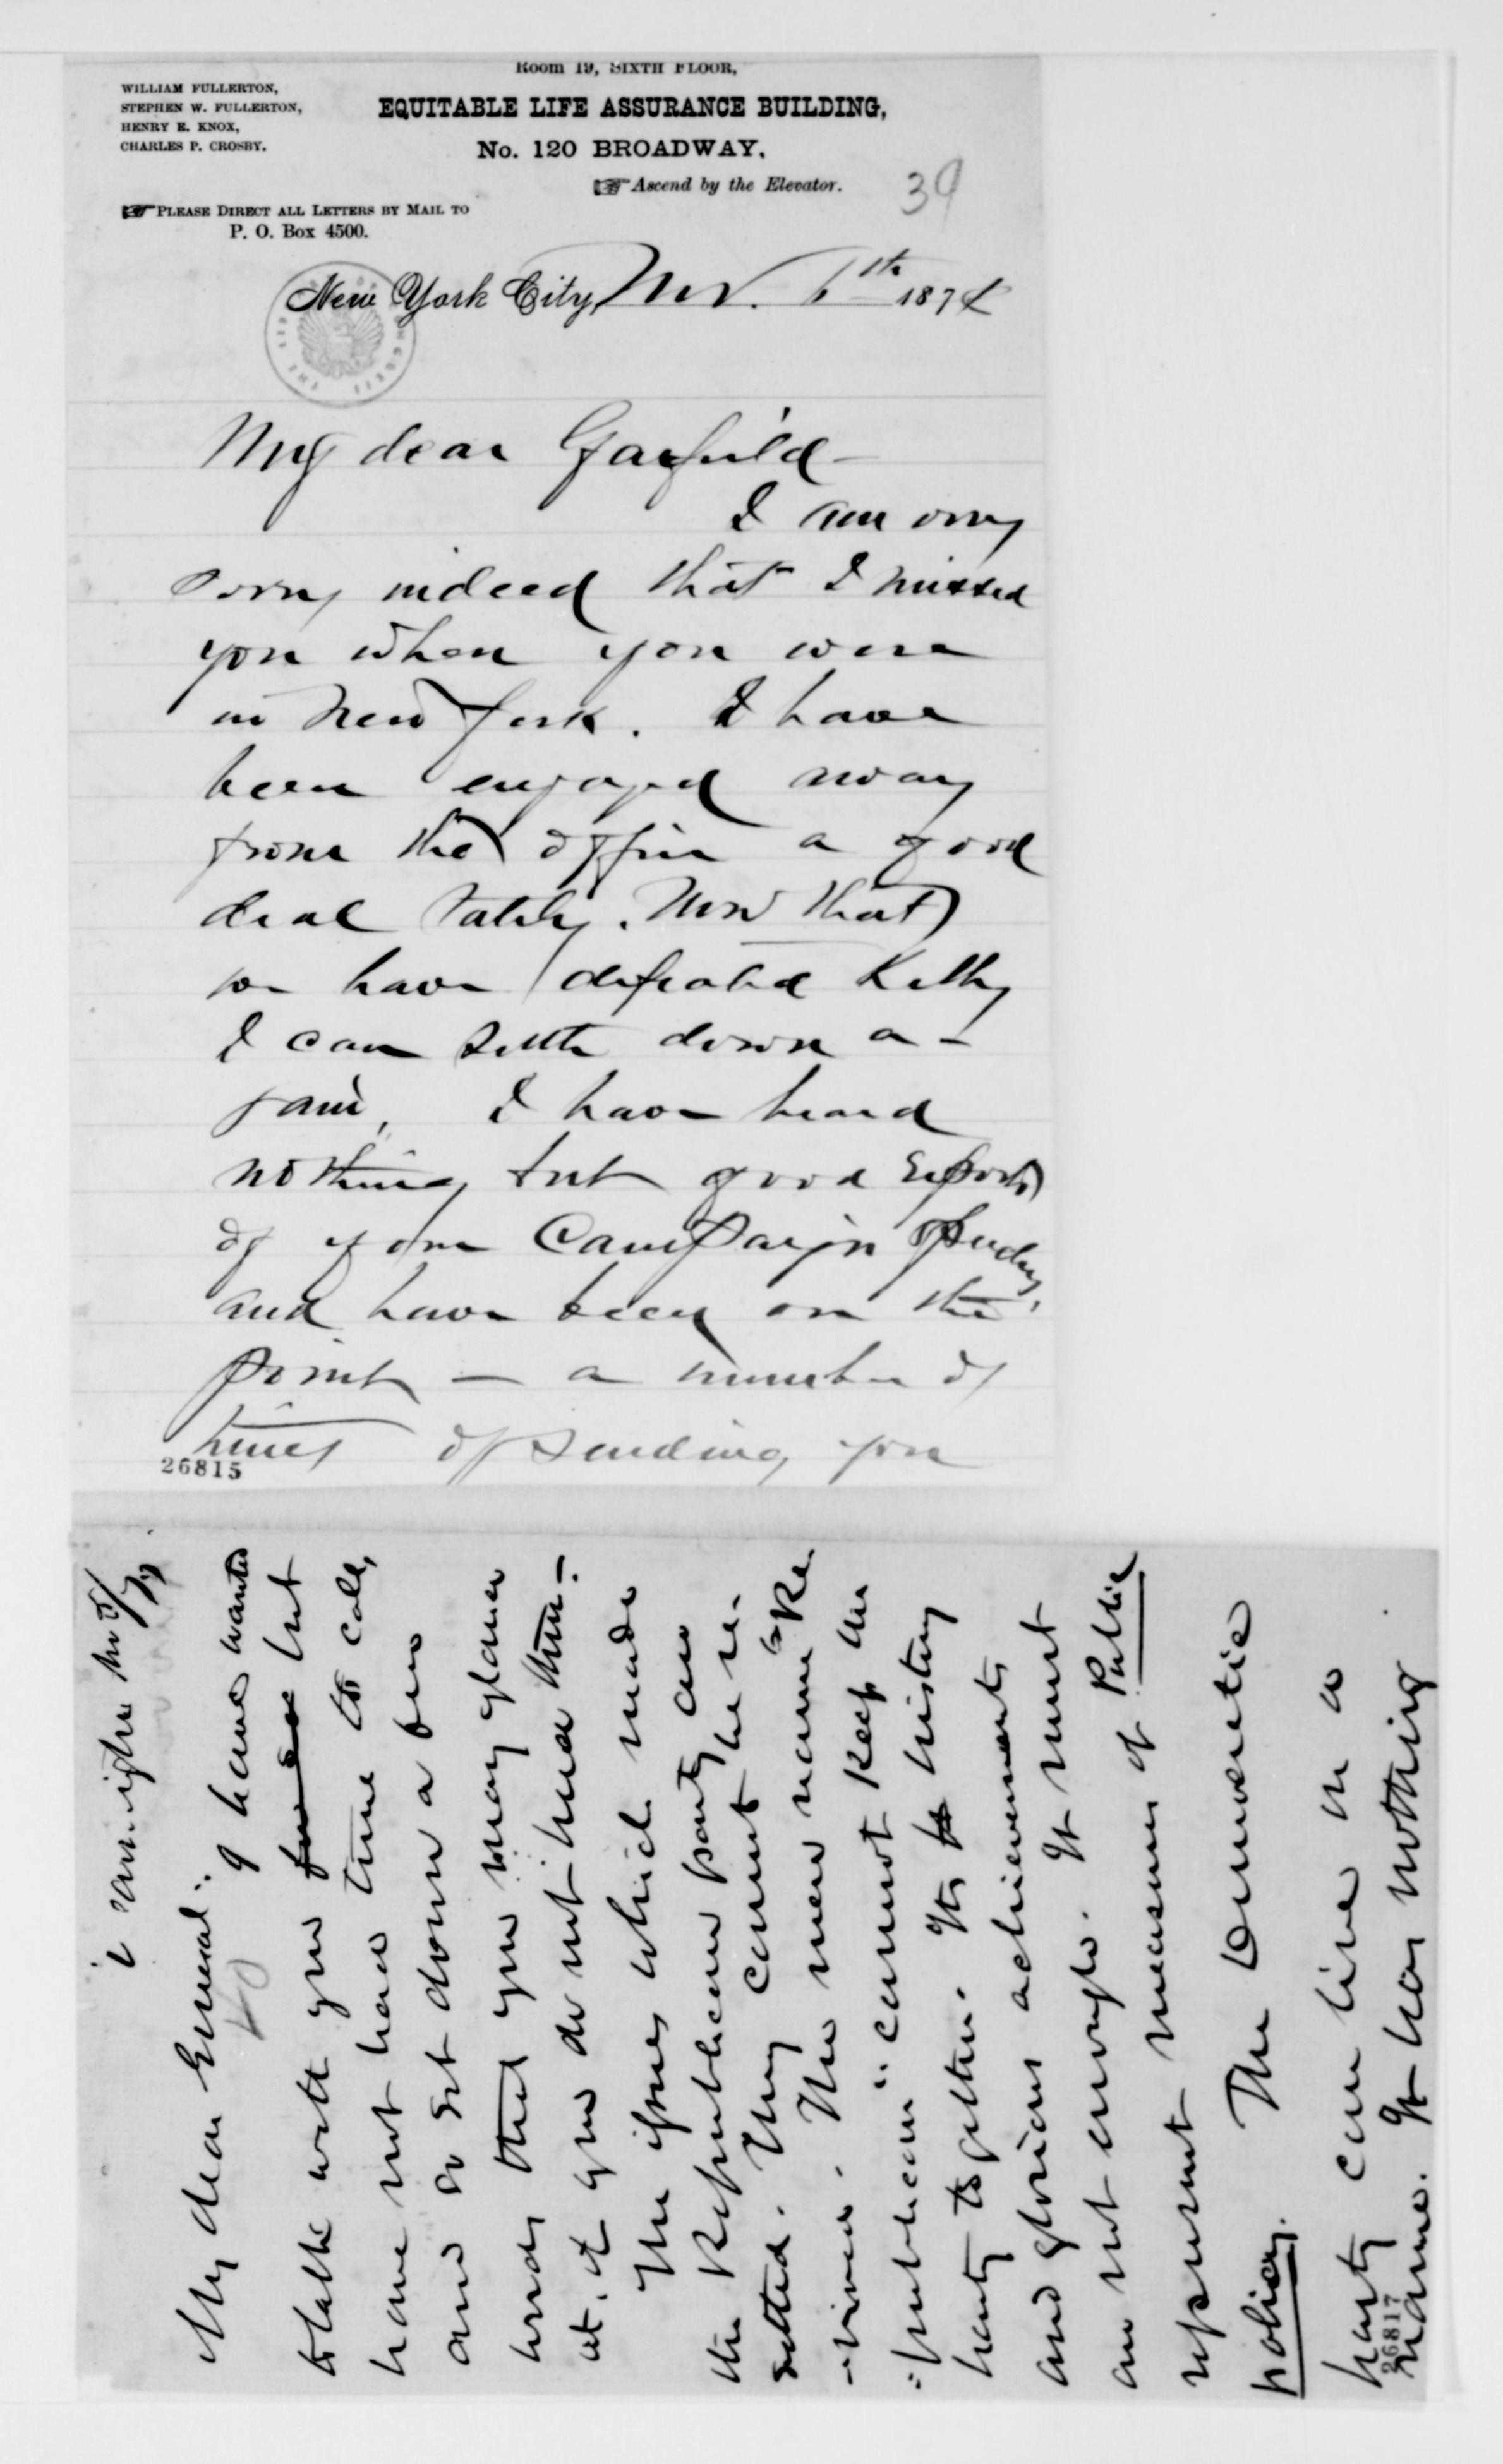 Room 19, SIXTH FLOOR,
WILLIAM FULLERTON,
STEPHEN W. FULLERTON,
HENRY E. KNOX,
CHARLES P. CROSBY.
EQUITABLE LIFE ASSURANCE BUILDING,
No. 120 BROADWAY,
Ascend by the Elevator.
39
PLEASE DIRECT ALL LETTERS BY MAIL TO
P. O. Box 4500.
New York City, Nov. 6th 1874
My dear Garfield—
I am very
sorry indeed that I missed
you when you were
in New York. I have
been engaged away
from the office a good
deal lately. Now that
we have defeated Kelly
I can settle down a-
gain, I have heard
nothing but good reports
of your Campaign speeches,
and have been on the
point — a number of
times of sending you
26815
My dear General:
I have wanted
to talk with you but
have not had time to call,
and so set down a few
words that you may glance
at, if you do not heed them.—
The issues which made
the Republican party are
settled. They cannot be re-
-vived. The mere name "Re-
-publican" cannot keep the
party together. Its history
and glorious achievements
are not enough. It must
represent measures of Public
policy. The Democratic
party can live on a
name. It has nothing
26817